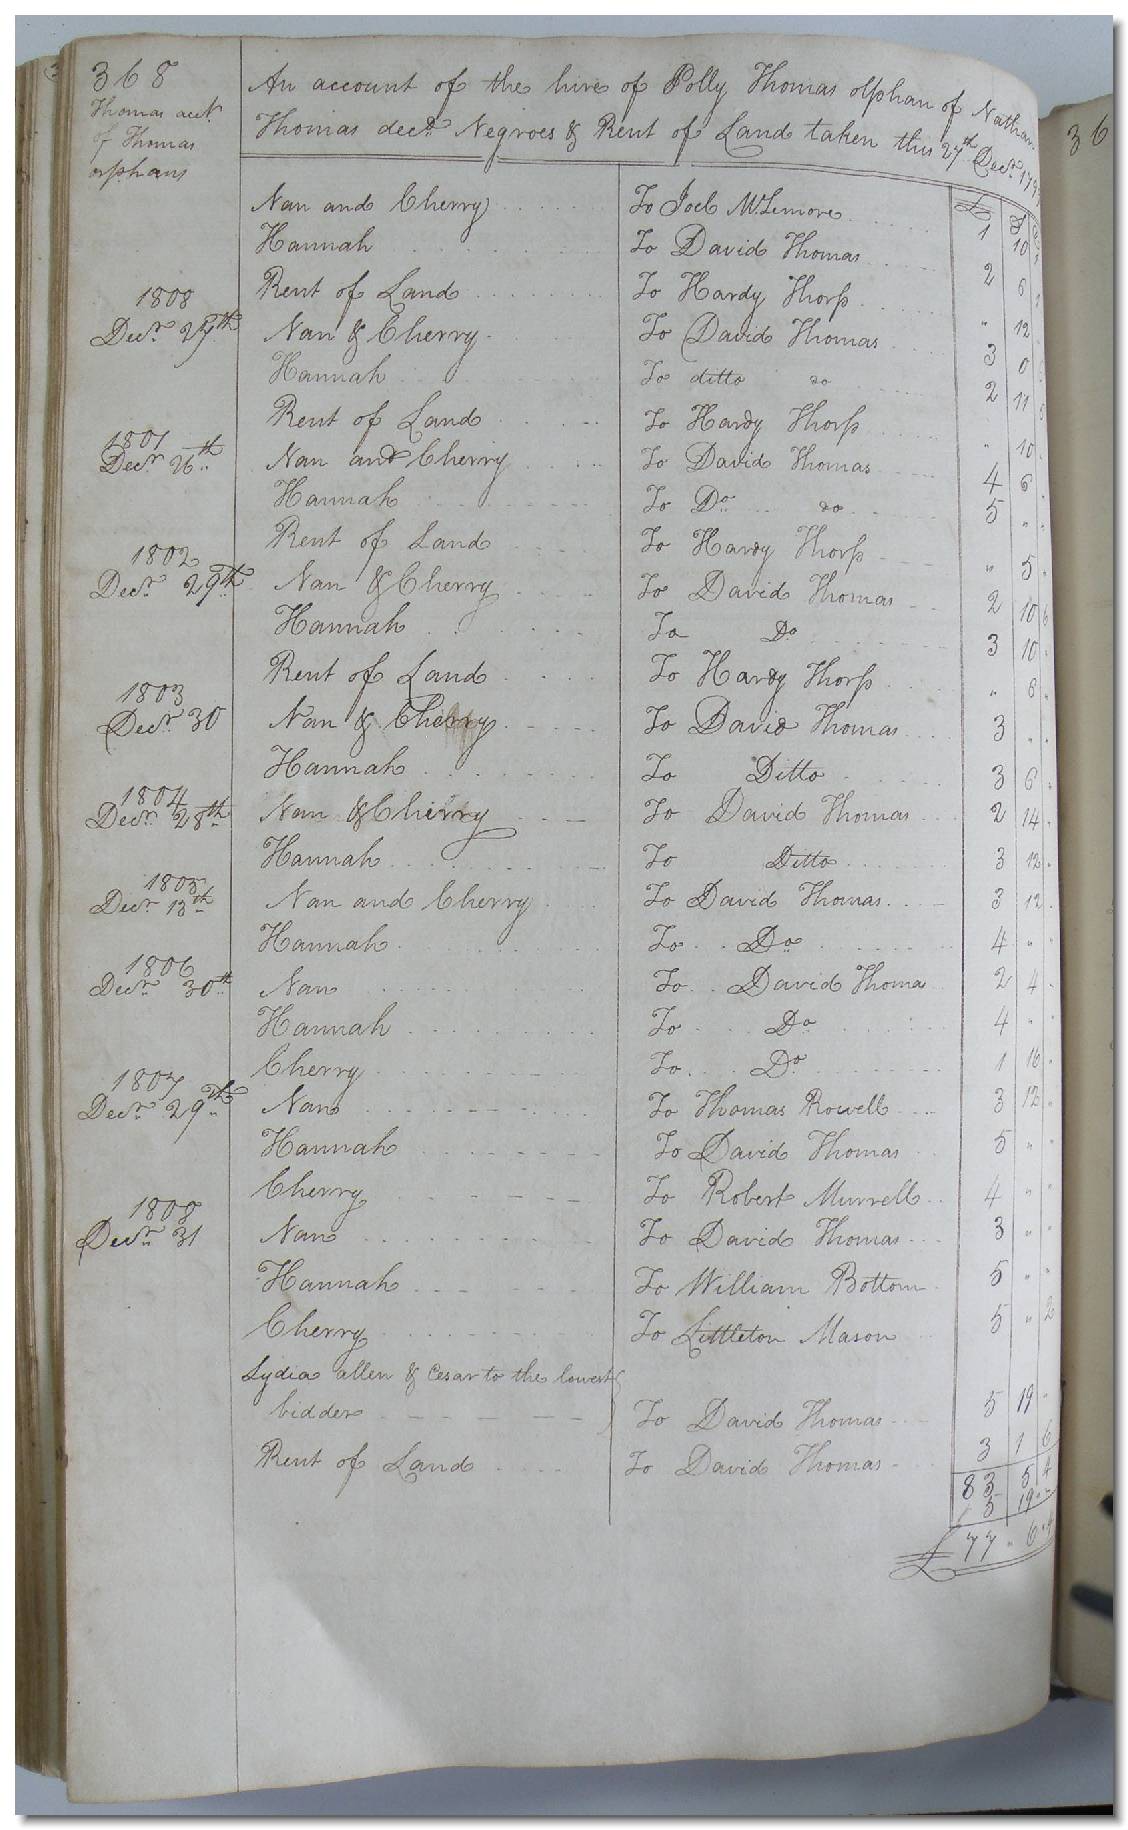 368
Thomas acct.
of Thomas
orphans
An account of the hire of Polly Thomas orphan of Nathan
Thomas decd. Negroes & Rent of Land taken this 27th Decr. 179
£ S
Nan and Cherry To Joel McLemore 1 10
Hannah To David Thomas 2 6
Rent of Land To Hardy Thorp " 12
1808
Decr. 27th Nan & Cherry To David Thomas 3 0
Hannah To ditto do 2 11
Rent of Land To Hardy Thorp " 10
1801
Decr. 26th Nan and Cherry To David Thomas 4 6
Hannah To Do do 5 " "
Rent of Land To Hardy Thorp " 5 "
1802
Decr. 29th Nan & Cherry To David Thomas 2 10 6
Hannah To Do 3 10 "
Rent of Land To Hardy Thorp " 8 "
1803
Decr. 30 Nan & Cherry To David Thomas 3 " "
Hannah To Ditto 3 6 "
1804
Decr. 28th Nan & Cherry To David Thomas 2 14 "
Hannah To Ditto 3 12 "
1805
Decr. 13th Nan and Cherry To David Thomas 3 12 "
Hannah To Do 4 " "
1806
Decr. 30th Nan To David Thoma 2 4 "
Hannah To Do 4 " "
Cherry To Do 1 16 "
1807
Decr. 29th Nan To Thomas Rowell 3 12 "
Hannah To David Thomas 5 " "
Cherry To Robert Murrell 4 " "
1808
Decr. 31 Nan To David Thomas 3 " "
Hannah To William Bottom 5 " "
Cherry To Littleton Mason 5 " 2
Lydia allen & Cesar to the lowest
bidder To David Thomas 5 19 "
Rent of Land To David Thomas 3 1 6
83 5 4
5 19 "
£ 77 " 6 " 4
36